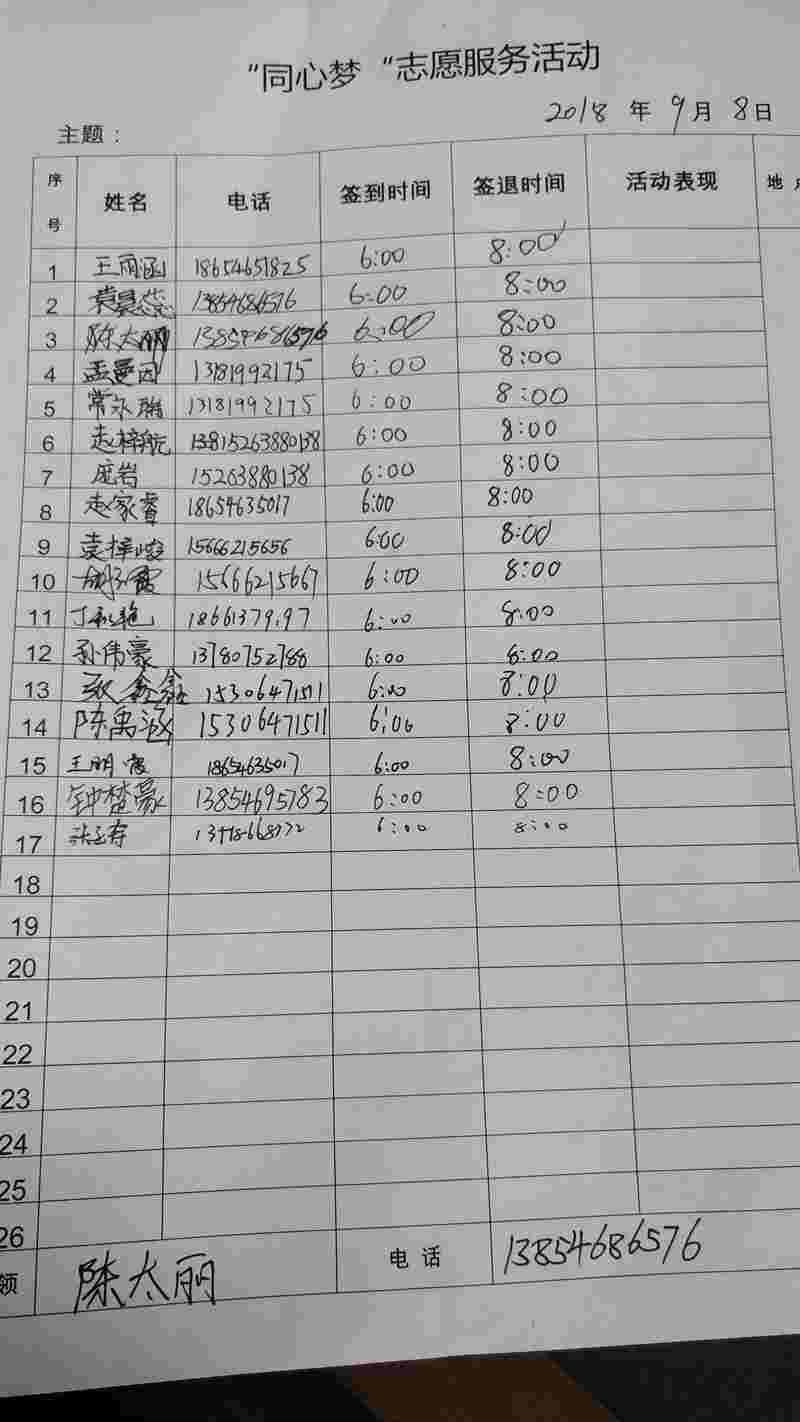 “同心梦 “志愿服务活动
2018 年 9 月 8 日
主题：
序号 姓名 电话 签到时间 签退时间 活动表现 地
1 王雨涵 18654651825 6:00 8:00
2 13854686576 6:00 8:00
3 陈太丽 13854686576 6:00 8:00
4 孟曼因 13181992175 6:00 8:00
5 常永瑞 13181992175 6:00 8:00
6 赵梓航 13815263880138 6:00 8:00
7 庞岩 15263880138 6:00 8:00
8 赵家睿 18654635017 6:00 8:00
9 袁梓峻 15666215656 6:00 8:00
10 胡 霞 15666215667 6:00 8:00
11 丁 艳 6:00 8:00
12 孙伟豪 13780752788 6:00 8:00
13 鑫鑫 15306471511 6:00 8:00
14 陈禹涵 15306471511 6:00 8:00
15 王明霞 18654635017 6:00 8:00
16 钟楚豪 13854695783 6:00 8:00
17 6:00 8:00
18
19
20
21
22
23
24
25
26
领 陈太丽 电 话 13854686576